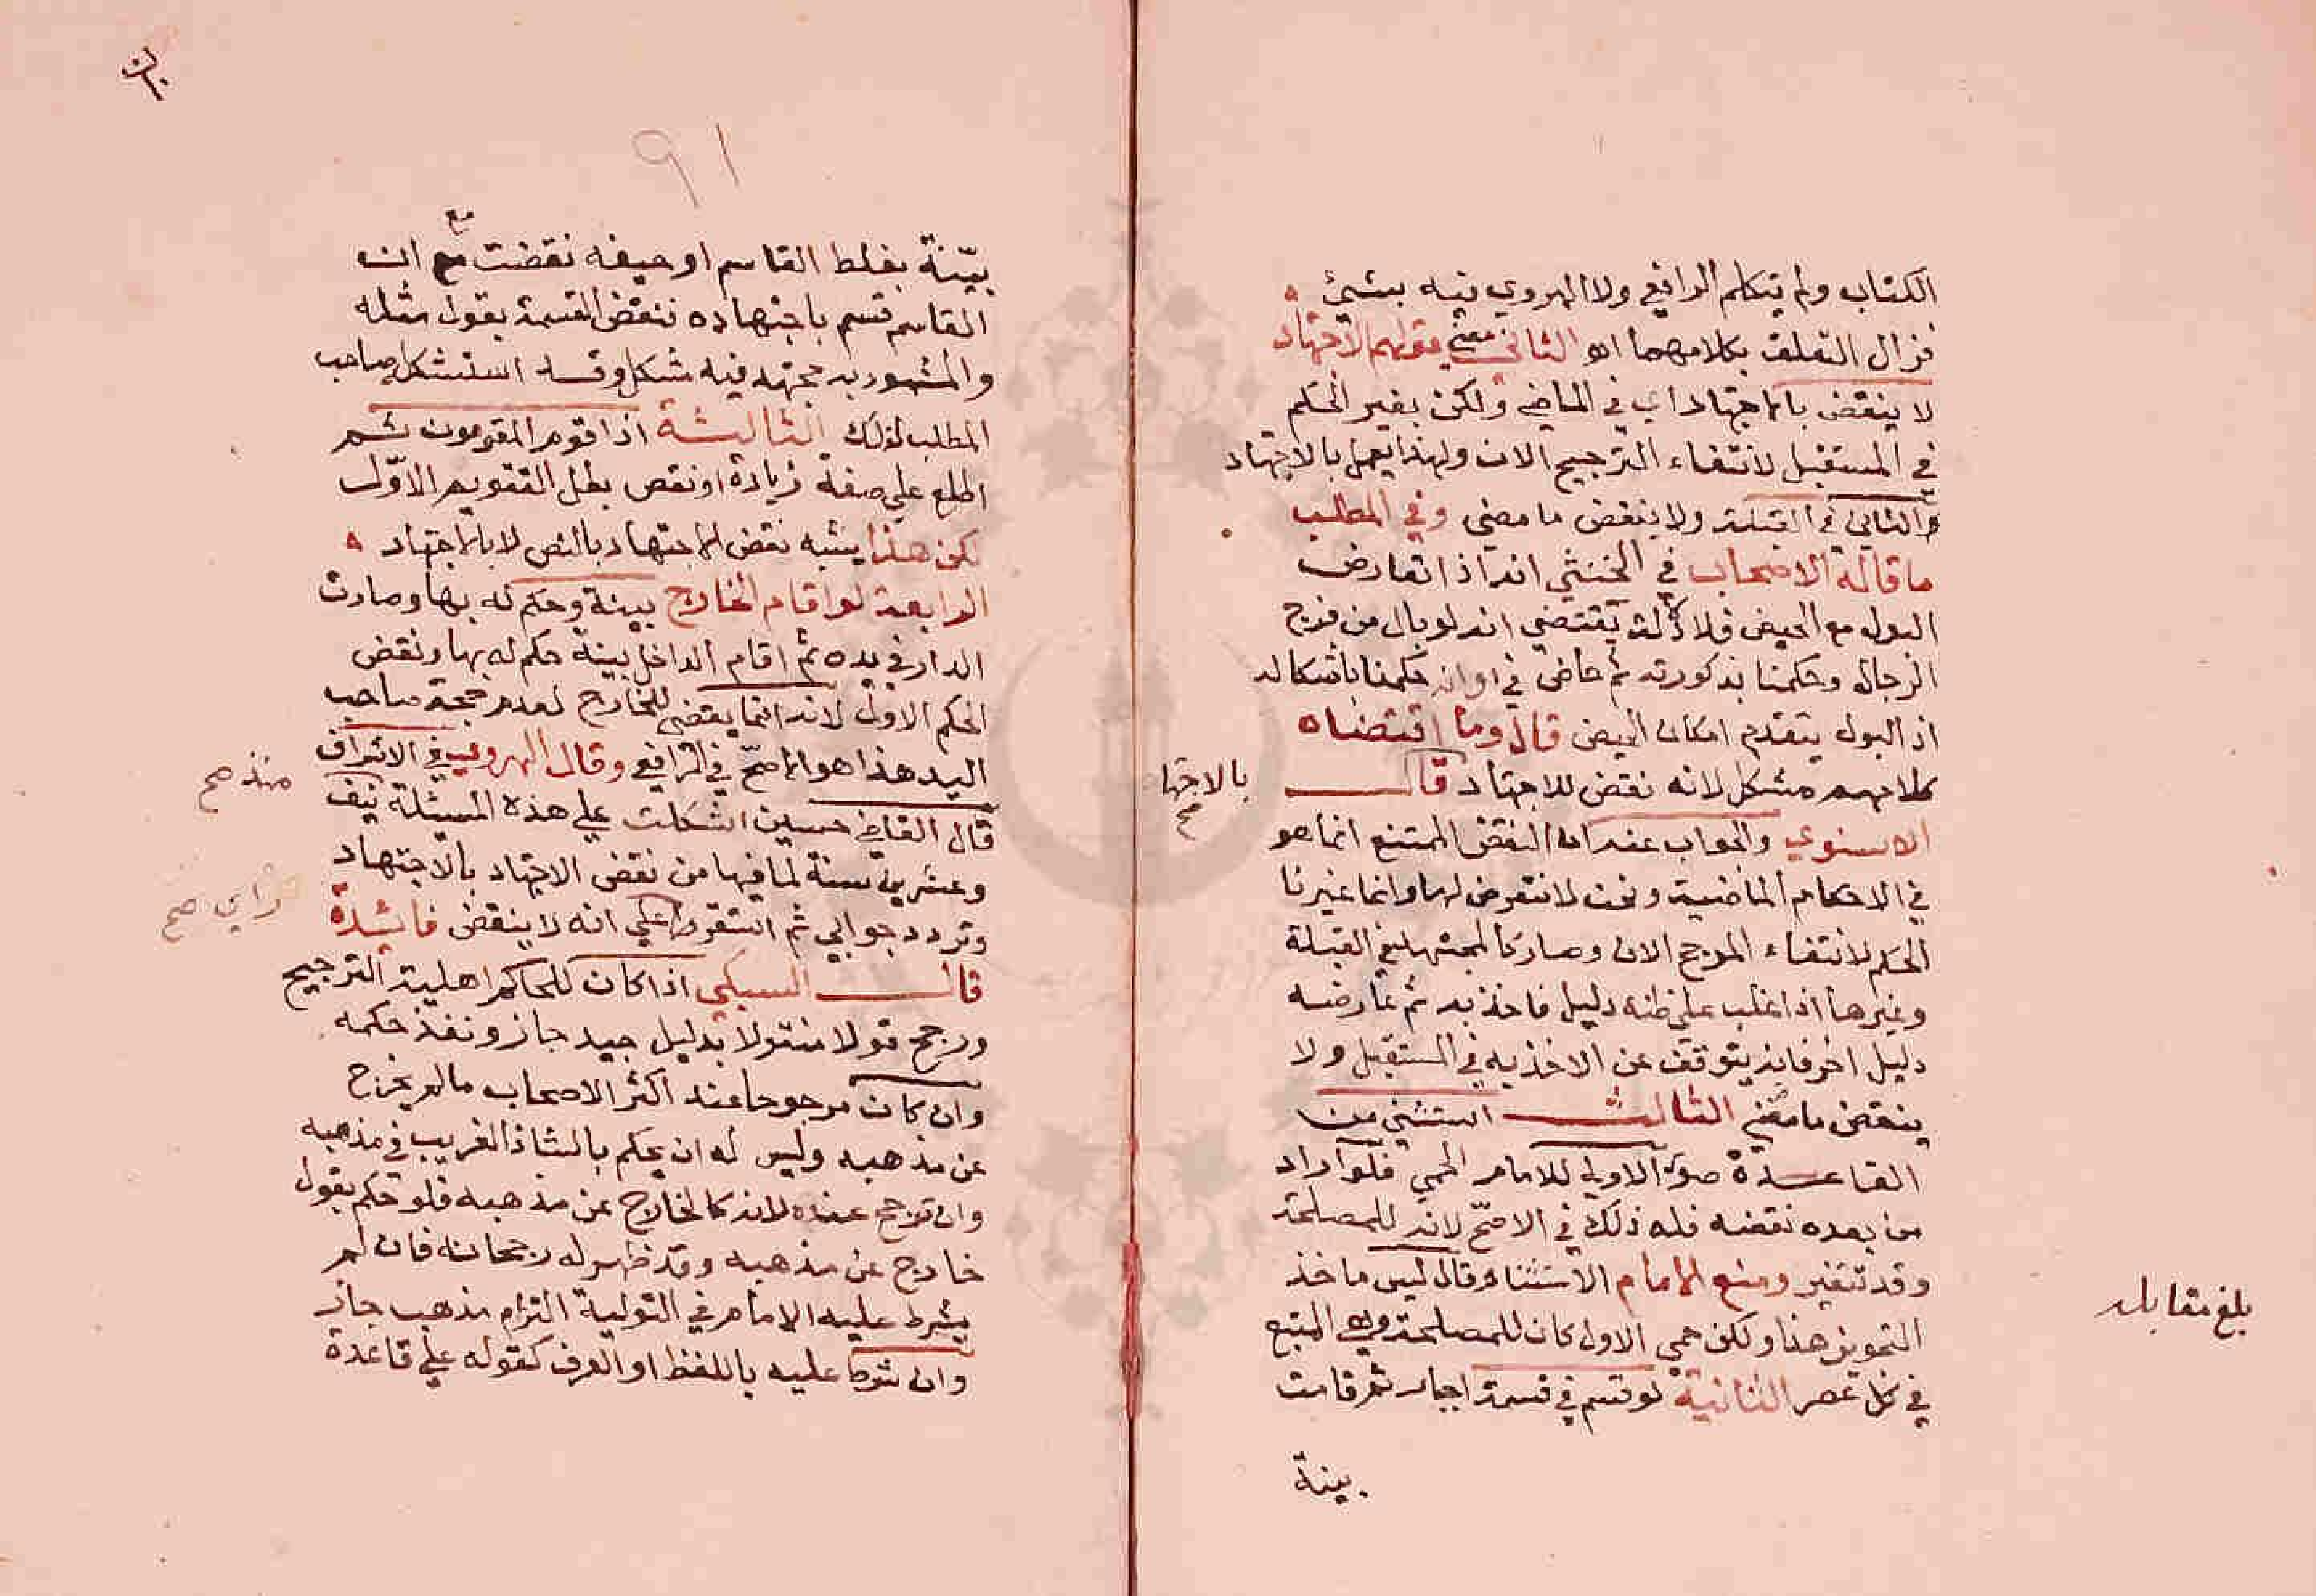 الكتاب ولم يتكلم الرافعي ولا الهروي فيه بشيئ
فزال التعلق بكلامهما اهو الثاني معني قولهم الاجتهاد
لا ينقض بالاجتهاد اي في الماضي ولكن يغير الحكم
في المستقبل لانتفاء الترجيح الان ولهذا يعمل بالاجتهاد
والثاني في القبلة ولا ينقض ما مضي وفي المطلب
ما قاله الاصحاب في الخنثي انه اذا تعارض
البول مع الحيض فلا دلالة يقتضي انه لو بال من فرج
الرجال وحكمنا بذكورته ثم حاض في اوانه حكمنا باشكاله
اذ البول يتقدم امكان الحيض قال وما اقتضاه
كلامهم مشكل لانه نقض للاجتهاد قال
بالاجتها
صح
الاسنوي والجواب عنه ان النقض الممتنع انما هو
في الاحكام الماضية ونحن لا نتعرض لها وانما غيرنا
الحكم لانتفاء المرجح الان وصار كالمجتهد في القبلة
وغيرها اذا غلب علي ظنه دليل فاخذ به ثم عارضه
دليل اخر فانه يتوقف عن الاخذ به في المستقبل ولا
ينقض ما مضي الثالث استثني من
القاعدة صور الاولي للامام الحمي فلو اراد
من بعده نقضه فله ذلك في الاصح لانه للمصلحة
وقد تتغير ومنع الامام الاستثناء وقال ليس ماخذ
التجويز هذا ولكن حمي الاول كان للمصلحة وهي المتبع
في كل عصر الثانية لو قسم في قسمة اجبار ثم قامت
بينة
بلغ مقابله
٩١
بينة بغلط القاسم او حيفه نقضت مع ان
مع
القاسم قسم باجتهاده فنقض القسمة بقول مثله
والمشهود به مجتهد فيه مشكل وقد استشكل صاحب
المطلب لذلك الثالثة اذا قوم المقومون ثم
اطلع علي صفة زيادة او نقص بطل التقويم الاول
لكن هذا يشبه نقض الاجتهاد بالنص لا بالاجتهاد
الرابعة لو اقام الخارج بينة وحكم له بها وصارت
الدار في يده ثم اقام الداخل بينة حكم له بها ونقض
الحكم الاول لانه انما يقضي للخارج لعدم حجة صاحب
اليد هذا هو الاصح في الرافعي وقال الهروي في الاشراف
منذ صح
قال القاضي حسين اشكلت علي هذه المسئلة نيف
وعشرين سنة لما فيها من نقض الاجتهاد بالاجتهاد
وتردد جوابي ثم استقر علي انه لا ينقض فائدة
راي صح
قال السبكي اذا كان للحاكم اهلية الترجيح
ورجح قولا منقولا بدليل جيد جاز ونفذ حكمه
وان كان مرجوحا عند اكثر الاصحاب ما لم يخرج
عن مذهبه وليس له ان يحكم بالشاذ الغريب في مذهبه
وان ترجح عنده لانه كالخارج عن مذهبه فلو حكم بقول
خارج عن مذهبه وقد ظهر له رجحانه فان لم
يشرط عليه الامام في التولية التزام مذهب جاز
وان شرط عليه باللفظ او العرف كقوله علي قاعدة